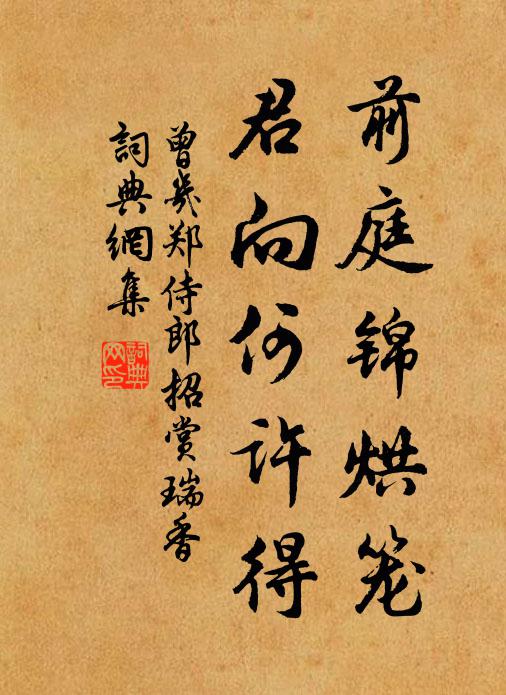 前庭锦烘笼
君向何许得
曾几郑侍郎招赏瑞香
詞典網集
詞典網印